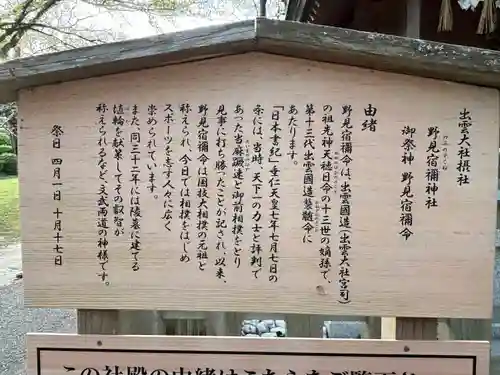 出雲大社摂社
野見宿禰神社
のみのすくね
御祭神 野見宿禰命
由緒
野見宿禰命は、出雲國造(出雲大社宮司)
の祖光神天穂日命の十三世の嫡孫で、
第十三代出雲國造襲髄命に
あたります。
「日本書紀」垂仁天皇七年七月七日の
条には、当時、天下一の力士と評判で
あった當麻蹶速と御前相撲をとり
見事に打ち勝ったことが記され、以来、
野見宿禰命は国技大相撲の元祖と
称えられ、今日では相撲をはじめ
スポーツを志す人々に広く
崇められています。
また、同三十二年には陵墓に建てる
埴輪を献策してその叡智が
称えられるなど、文武両道の神様です。
祭日 四月一日、十月十七日
この社殿の由緒は